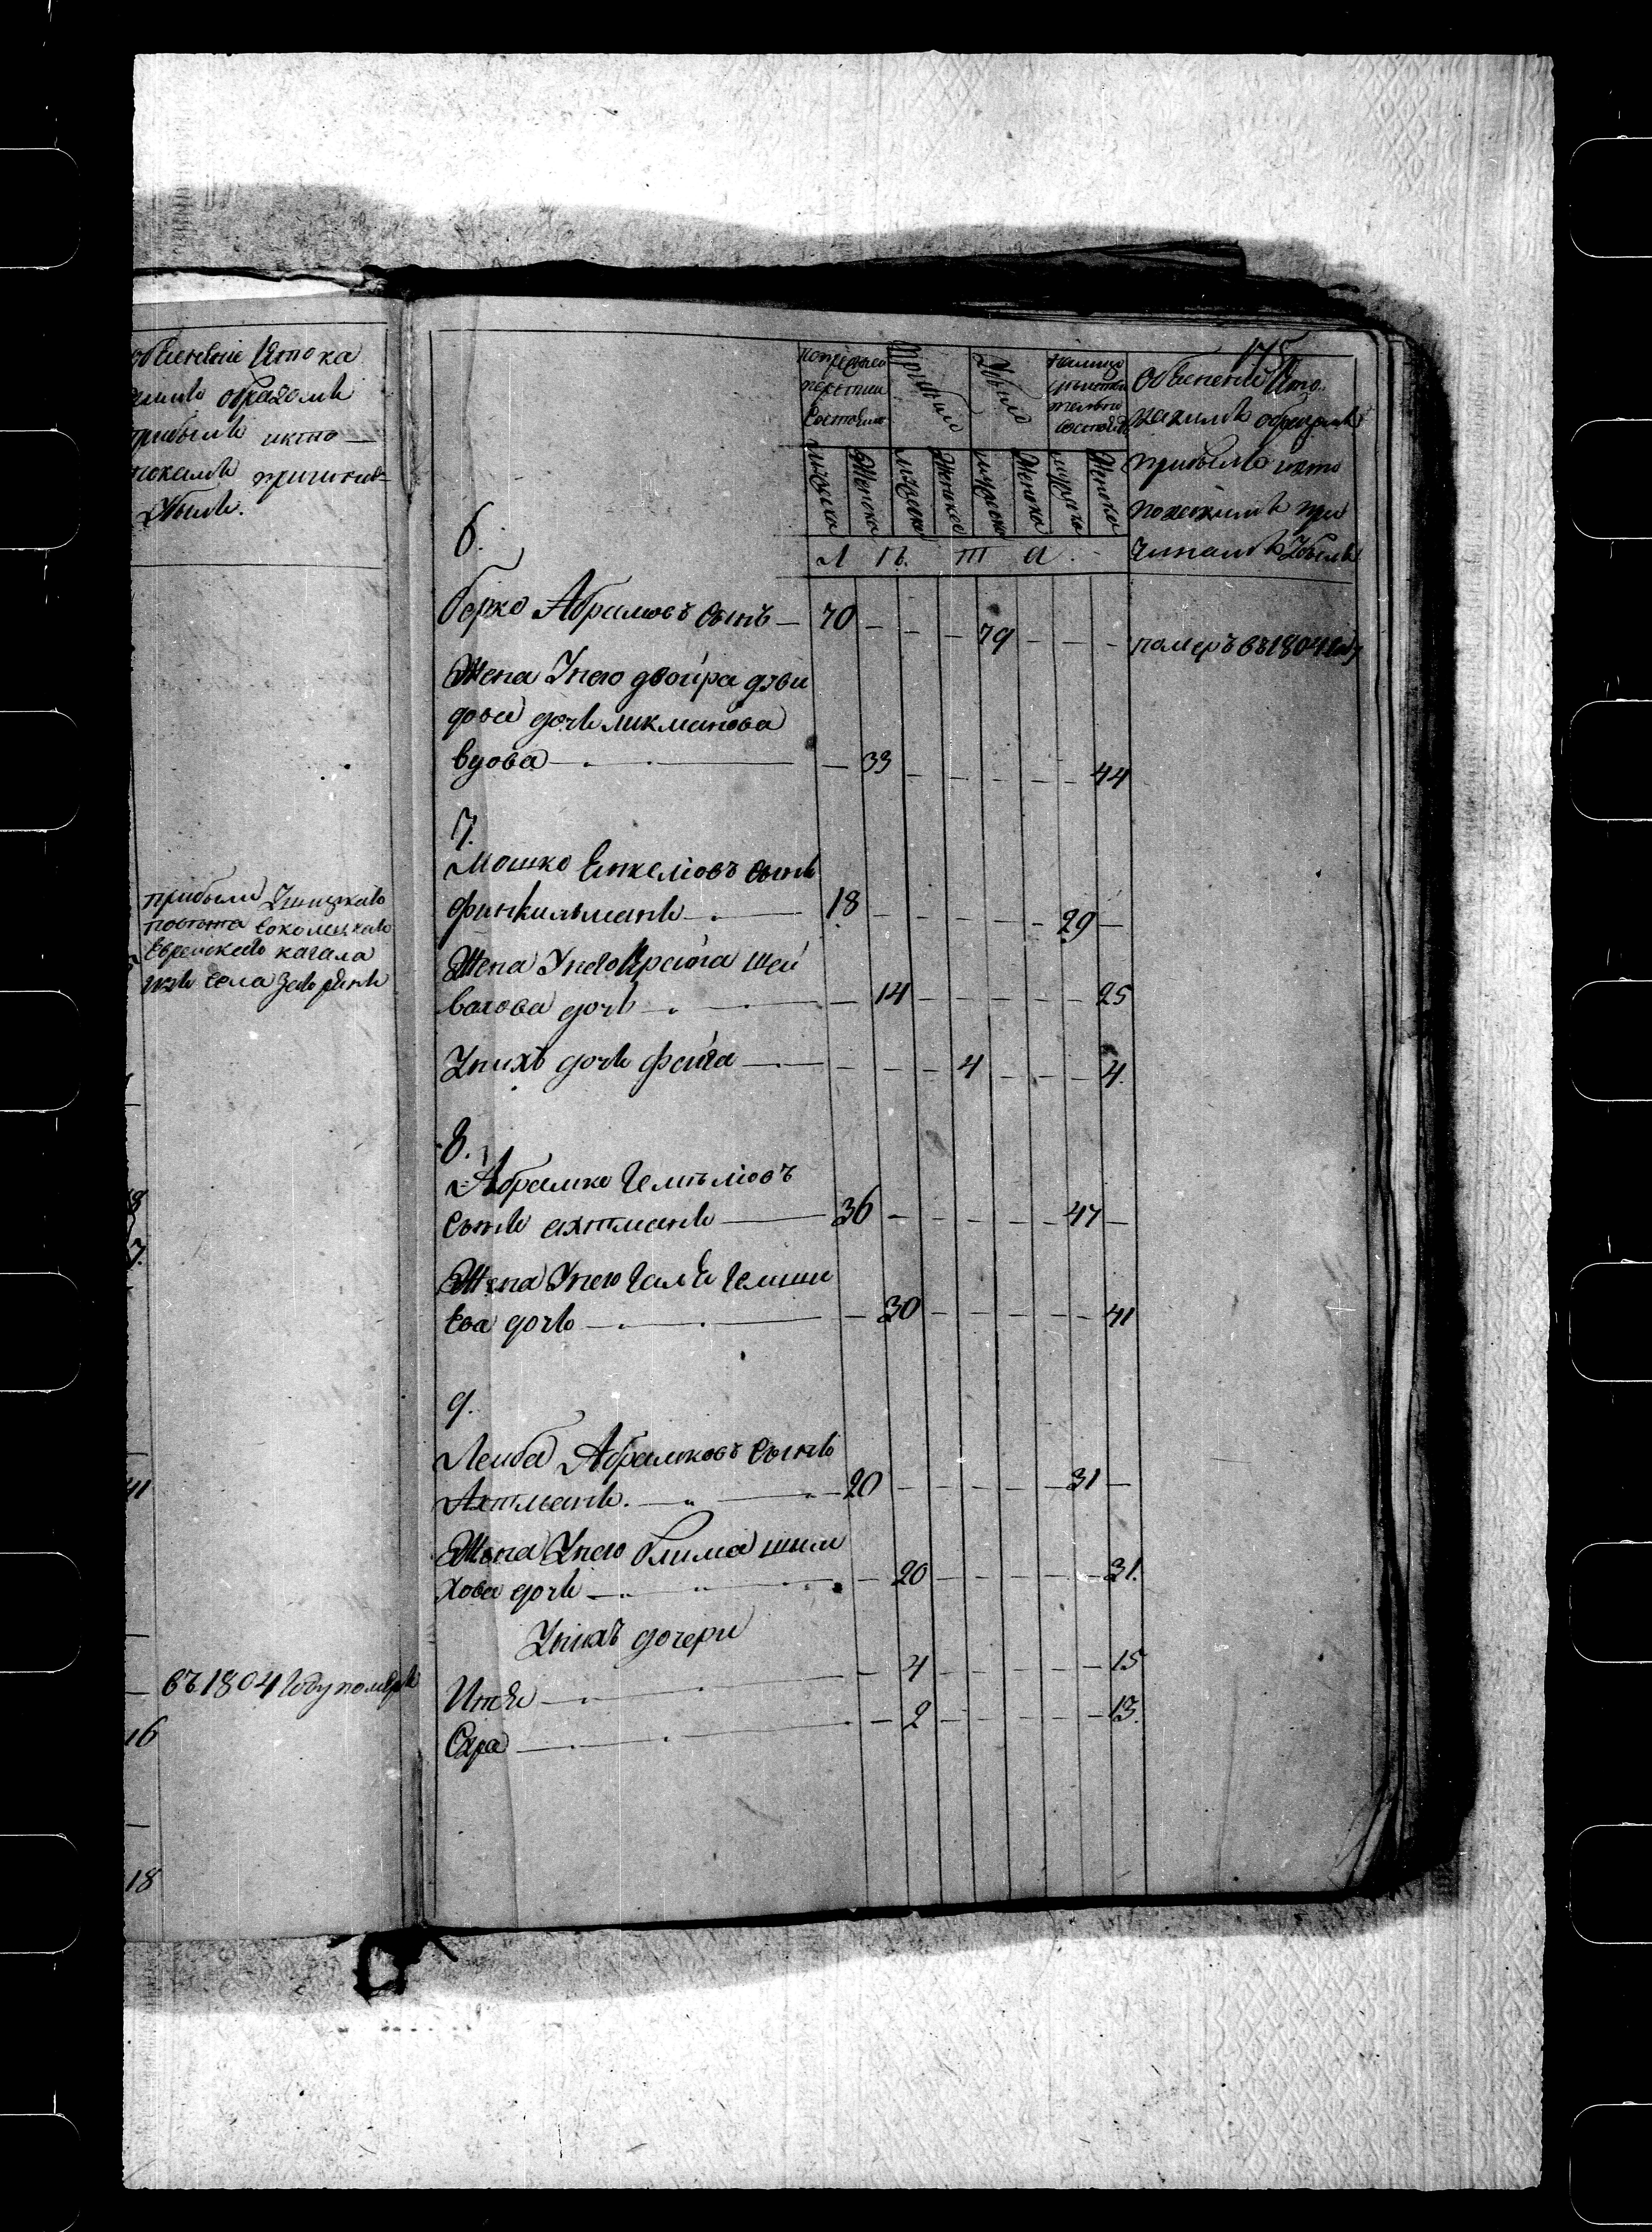 Объяснение Кто ка
кимъ образомъ
прибылъ икто
покакимъ причинамъ
Убылъ.
прибыли Ушицкаго
повета
Еврейскаго кагала
изъ села
въ 1804 году померъ
41
16
18
175
попрежней
состояло
Прибыло
Убыло
налицо
состоитъ
Объяснение Кто
какимъ образомъ
прибылъ икто
покакимъ при
чинамъ Убылъ
мужеска
Женска
мужеска
Женска
мужеска
Женска
мужеска
Женска
Л Ѣ т а
6.
берко Абрамовъ сынъ — 70 — — — 79 — — — померъ въ 1804 году
Жена Унего двойра дави
дова дочь ликманова
вдова — 33 — — — — — 44
7.
Мошко Енкелiовъ сынъ
финкильманъ — 18 — — — — — 29 —
Жена Унего Крайга Шей
вахова дочь — 14 — — — — — 25
Унихъ дочь фейга — — — — 4 — — — 4.
8.
Абрамко
сынъ ахтманъ — 36 — — — — — 47 —
Жена Унего
ева дочь — 30 — — — — — 41
9.
Лейба Абрамковъ сынъ
Ахтманъ. — 20 — — — — — 31 —
Жена Унего блима шим
хова дочь — 20 — — — — — 31.
Унихъ дочери
Итя — 4 — — — — — 15
Сура — 2 — — — — — 13.